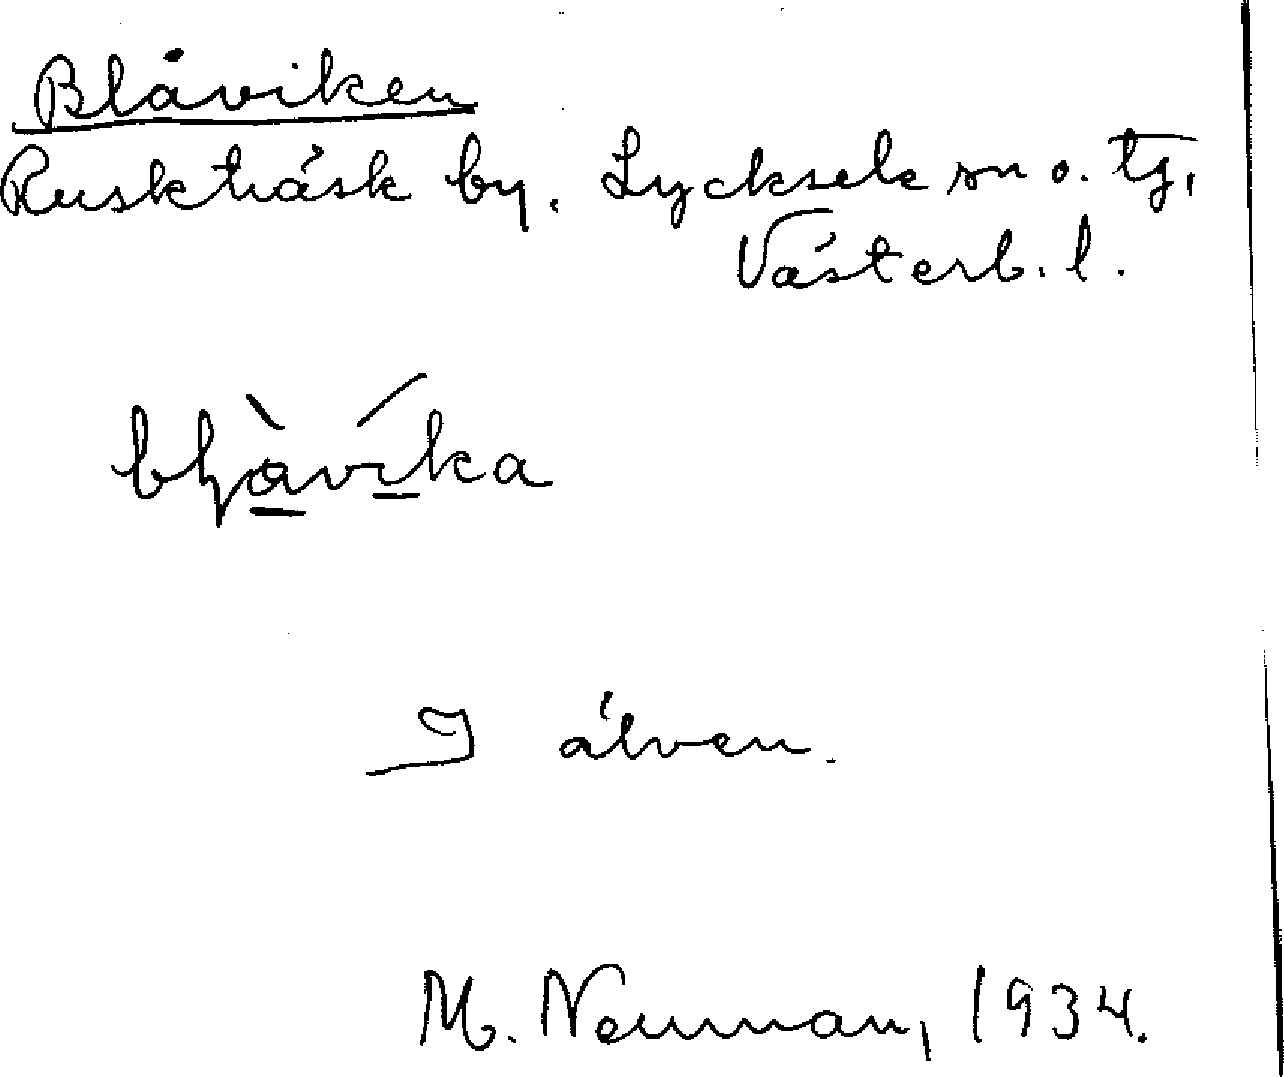 Blåviken
Ruskträsk by. Lycksele sn o. tg.
Västerb. l.
I älven.
M. Neuman, 1934.